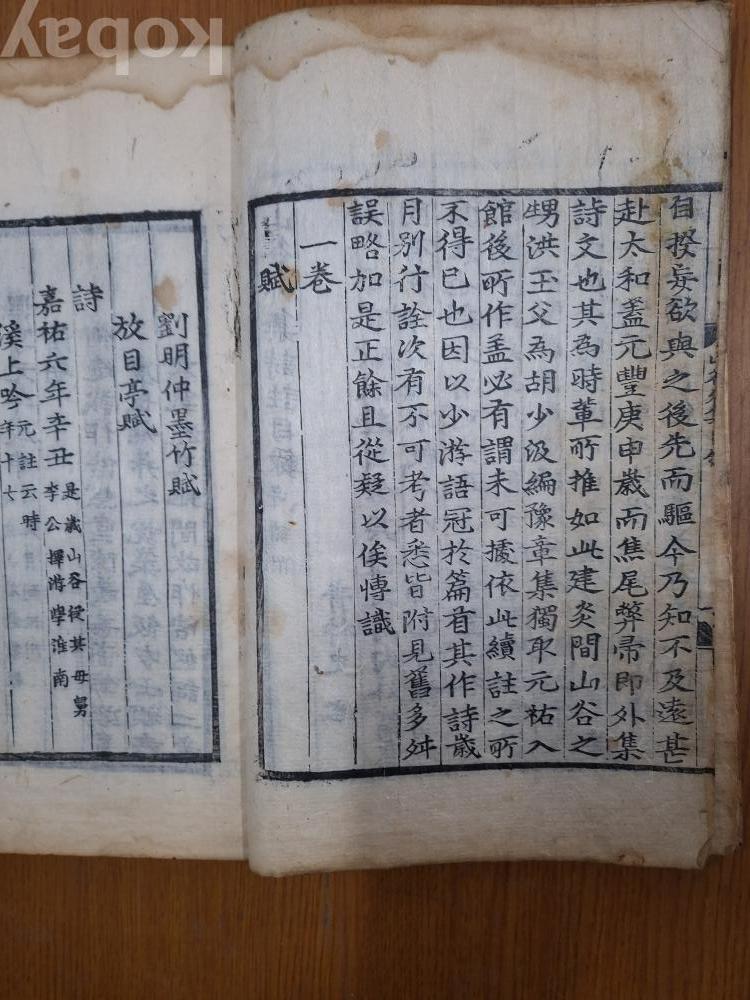 kobay
自揆每欲與之後先而驅今乃知不及遠甚
赴太和葢元豐庚申歲而焦尾弊帚即外集
詩文也其為時軰所推如此建炎間山谷之
甥洪玉父為胡少汲編豫章集獨取元祐入
館後所作葢必有謂未可據依此續註之所
不得已也因以少游語冠於篇首其作詩歲
月别行詮次有不可考者悉皆附見舊多舛
誤略加是正餘且從疑以俟慱識
一卷
賦
劉明仲墨竹賦
放目亭賦
詩
嘉祐六年辛丑 是歲山谷從其母舅
李公擇游學淮南
溪上吟 元註云時
年十七